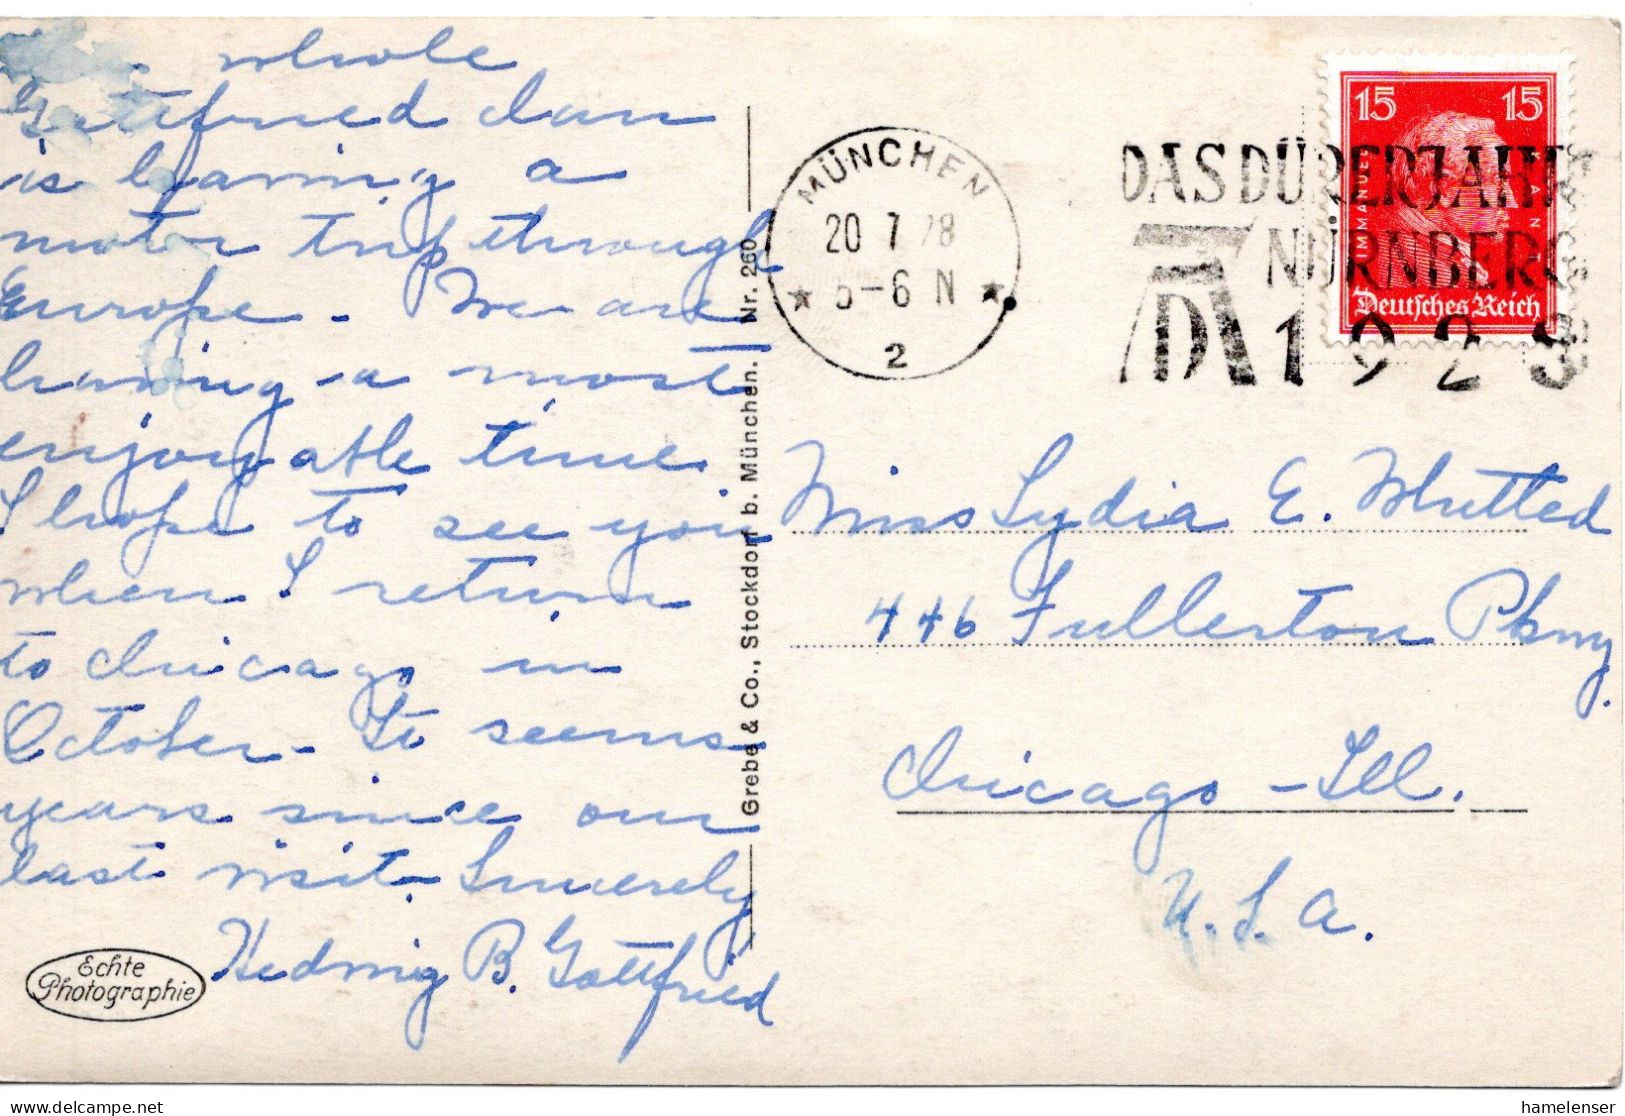 whole
Gottfried clan
is having a
motor trip through
Europe - We are
having a most
enjoyable time.
I hope to see you
when I return
to Chicago in
October - It seems
years since our
last visit. Sincerely
Hedwig B. Gottfried
Echte
Photographie
Grebe & Co., Stockdorf b. München. Nr. 260
MÜNCHEN
20 7 28
5-6 N
2
DAS DÜRERJAHR
NÜRNBERG
1928
15 15
IMMANUEL KANT
Deutsches Reich
Miss Lydia E. Whitted
446 Fullerton Pkwy.
Chicago - Ill.
U. S. A.
delcampe.net
hamelenser